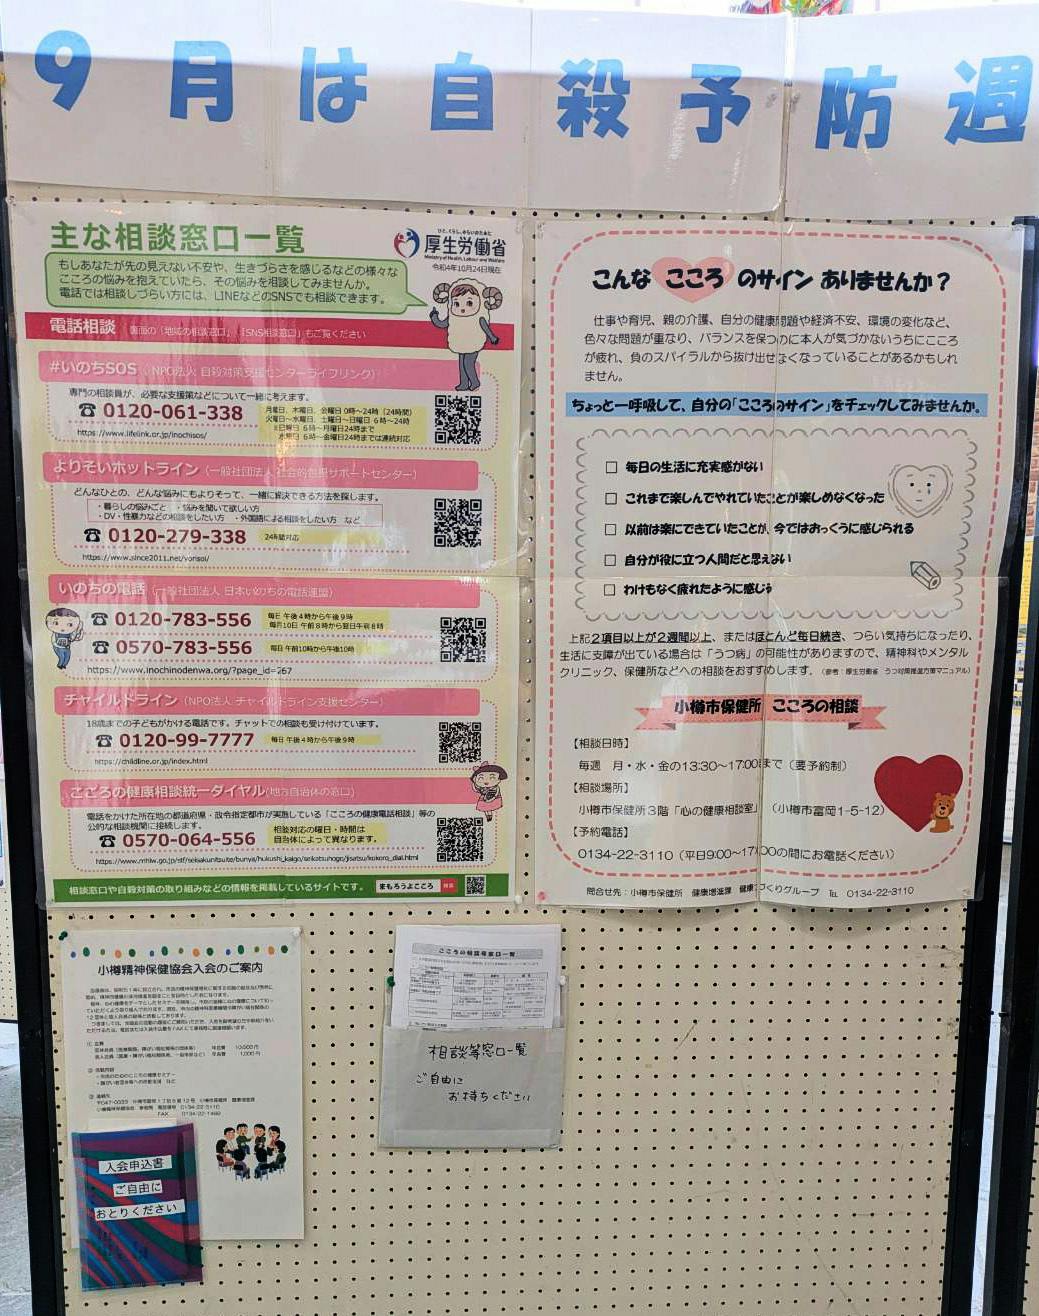 9月は自殺予防週
主な相談窓口一覧
ひと、くらし、みらいのために
厚生労働省
Ministry of Health, Labour and Welfare
令和4年10月24日現在
もしあなたが先の見えない不安や、生きづらさを感じるなどの様々な
こころの悩みを抱えていたら、その悩みを相談してみませんか。
電話では相談しづらい方には、LINEなどのSNSでも相談できます。
電話相談 裏面の「地域の相談窓口」、「SNS相談窓口」もご覧ください
#いのちSOS（NPO法人 自殺対策支援センターライフリンク）
専門の相談員が、必要な支援策などについて一緒に考えます。
☎ 0120-061-338
月曜日、木曜日、金曜日 0時～24時（24時間）
火曜日～水曜日、土曜日～日曜日 6時～24時
https://www.lifelink.or.jp/inochisos/
よりそいホットライン（一般社団法人 社会的包摂サポートセンター）
どんなひとの、どんな悩みにもよりそって、一緒に解決できる方法を探します。
・暮らしの悩みごと ・悩みを聞いて欲しい方
・DV・性暴力などの相談をしたい方 ・外国語による相談をしたい方 など
☎ 0120-279-338 24時間対応
https://www.since2011.net/yorisoi/
いのちの電話（一般社団法人 日本いのちの電話連盟）
☎ 0120-783-556 毎日 午後4時から午後9時
毎月10日 午前8時から翌日午前8時
☎ 0570-783-556 毎日 午前10時から午後10時
https://www.inochinodenwa.org/?page_id=267
チャイルドライン（NPO法人 チャイルドライン支援センター）
18歳までの子どもがかける電話です。チャットでの相談も受け付けています。
☎ 0120-99-7777 毎日 午後4時から午後9時
https://childline.or.jp/index.html
こころの健康相談統一ダイヤル（地方自治体の窓口）
電話をかけた所在地の都道府県・政令指定都市が実施している「こころの健康電話相談」等の
公的な相談機関に接続します。
☎ 0570-064-556
相談対応の曜日・時間は
自治体によって異なります。
https://www.mhlw.go.jp/stf/seisakunitsuite/bunya/hukushi_kaigo/seikatsuhogo/jisatsu/kokoro_dial.html
相談窓口や自殺対策の取り組みなどの情報を掲載しているサイトです。 まもろうよこころ 検索
こんな こころ のサイン ありませんか？
仕事や育児、親の介護、自分の健康問題や経済不安、環境の変化など、
色々な問題が重なり、バランスを保つのに本人が気づかないうちにこころ
が疲れ、負のスパイラルから抜け出せなくなっていることがあるかもしれ
ません。
ちょっと一呼吸して、自分の「こころのサイン」をチェックしてみませんか。
□ 毎日の生活に充実感がない
□ これまで楽しんでやれていたことが楽しめなくなった
□ 以前は楽にできていたことが、今ではおっくうに感じられる
□ 自分が役に立つ人間だと思えない
□ わけもなく疲れたように感じ
上記2項目以上が2週間以上、またはほとんど毎日続き、つらい気持ちになったり、
生活に支障が出ている場合は「うつ病」の可能性がありますので、精神科やメンタル
クリニック、保健所などへの相談をおすすめします。（参考：厚生労働省 うつ対策推進方策マニュアル）
小樽市保健所 こころの相談
【相談日時】
毎週 月・水・金の13:30～17:00まで（要予約制）
【相談場所】
小樽市保健所3階「心の健康相談室」（小樽市富岡1-5-12）
【予約電話】
0134-22-3110（平日9:00～17:00の間にお電話ください）
問合せ先：小樽市保健所 健康増進課 健康づくりグループ ℡ 0134-22-3110
小樽精神保健協会入会のご案内
入会申込書
ご自由に
おとりください
こころの相談等窓口一覧
相談等窓口一覧
ご自由に
お持ちください